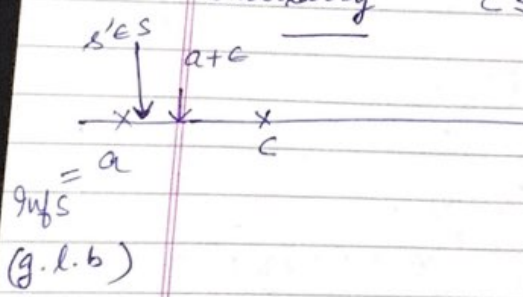 s'∈S
a+ϵ
a
c
= Inf S
(g.l.b)